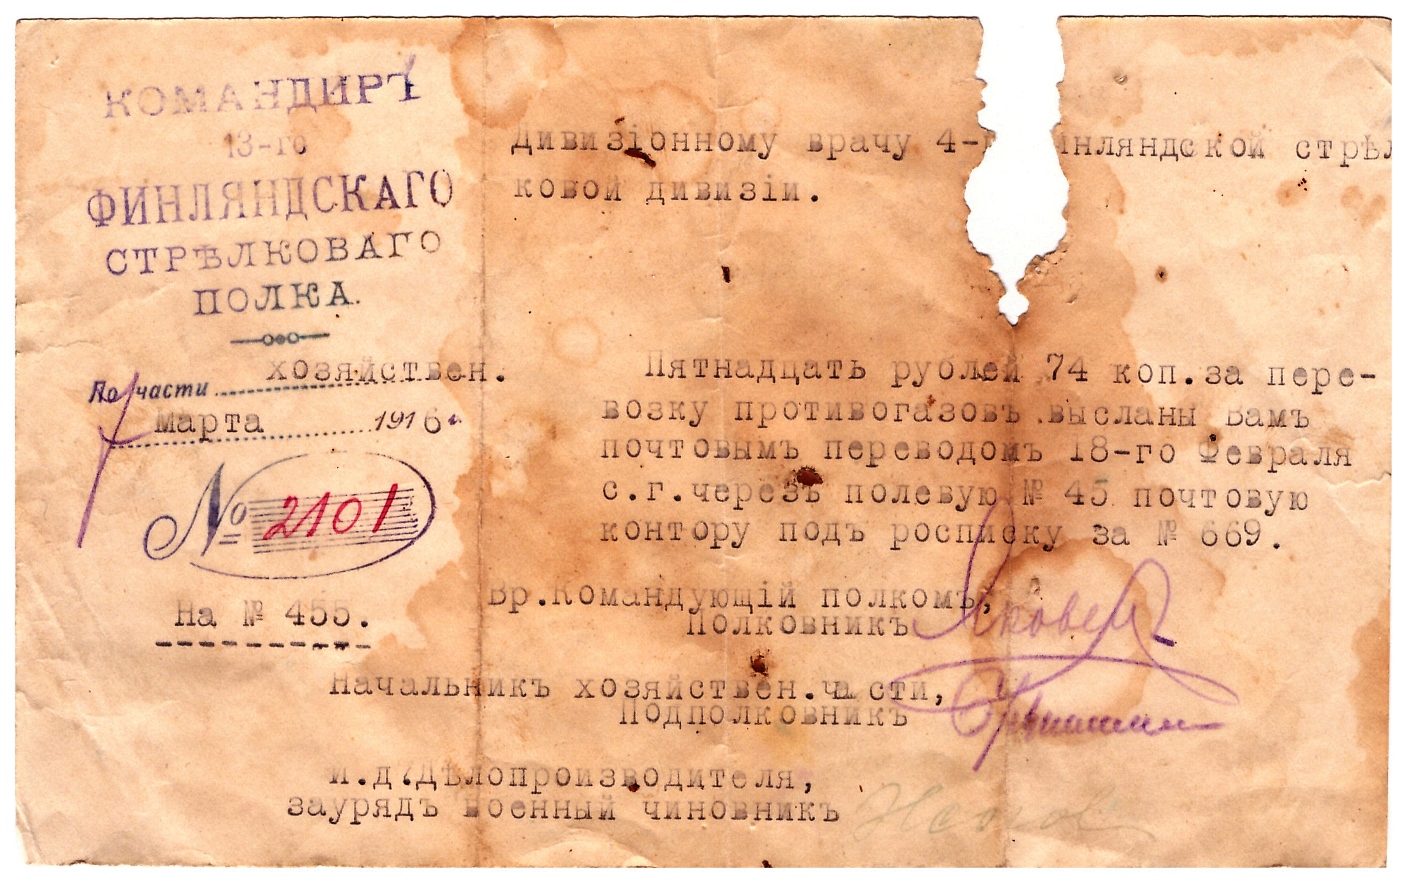 КОМАНДИРЪ
13-го
ФИНЛЯНДСКАГО
СТРѢЛКОВАГО
ПОЛКА.
По части хозяйствен.
7 Марта 1916 г.
№ 2101
На № 455.
Дивизіонному врачу 4- инляндской стрѣл
ковой дивизіи.
Пятнадцать рублей 74 коп.за пере-
возку противогазовъ высланы Вамъ
почтовымъ переводомъ 18-го Февраля
с.г.черезъ полевую № 45 почтовую
контору подъ росписку за № 669.
Вр.Командующій полкомъ,
Полковникъ
Начальникъ хозяйствен.части,
Подполковникъ
И.д.Дѣлопроизводителя,
заурядъ военный чиновникъ